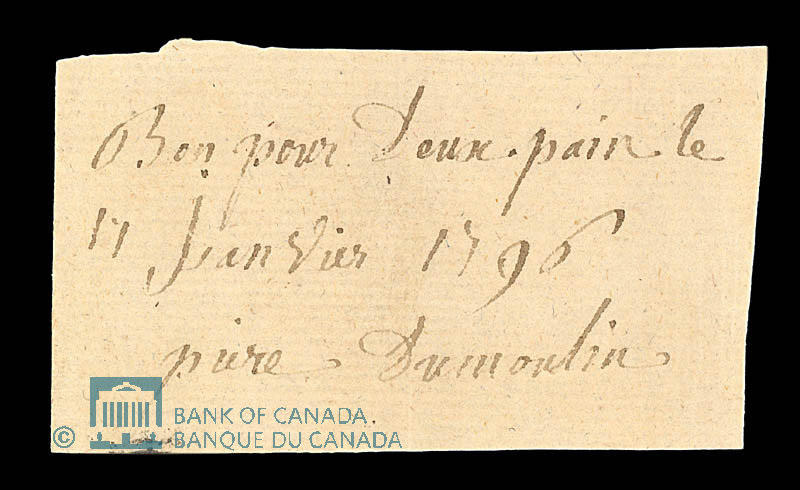 Bon pour Deux pain le
17 Janvier 1796
piere Dumoulin
© BANK OF CANADA
BANQUE DU CANADA